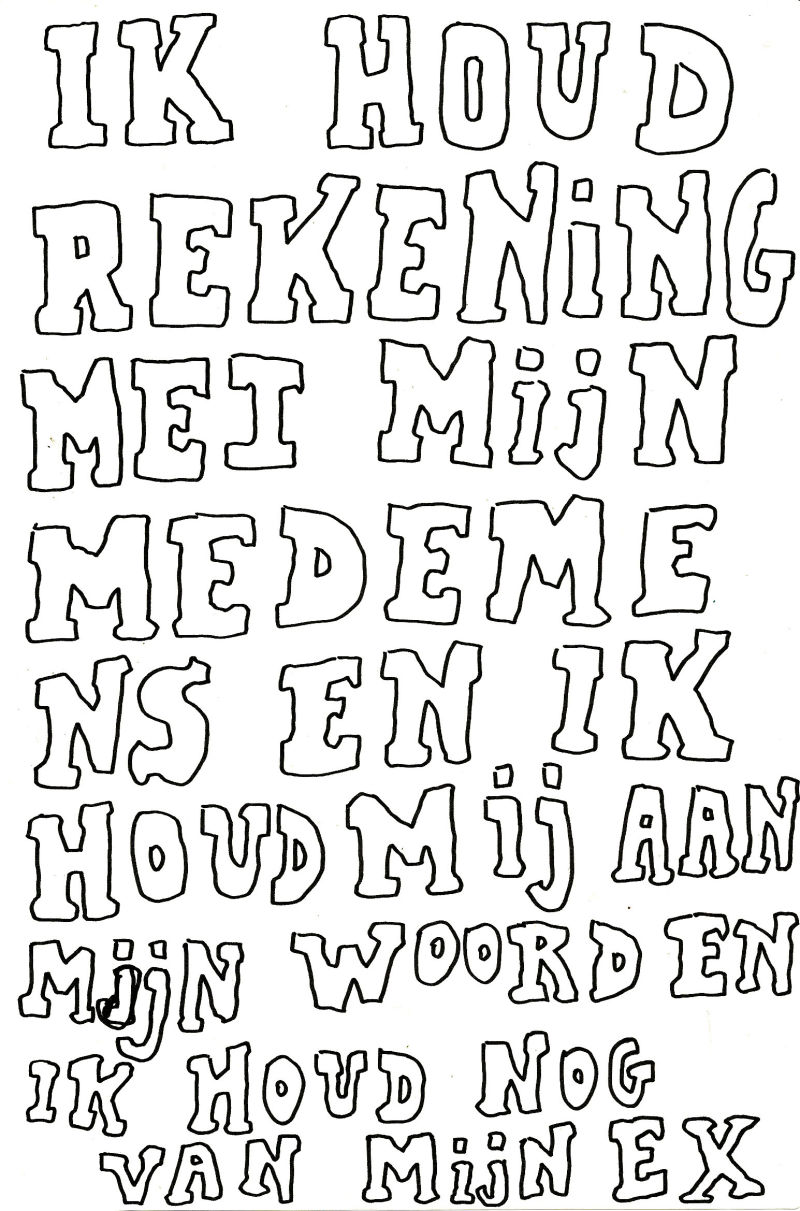 IK HOUD
REKENiNG
MET MijN
MEDEME
NS EN IK
HOUD Mij AAN
MijN WOORD EN
IK HOUD NOG
VAN MijN EX